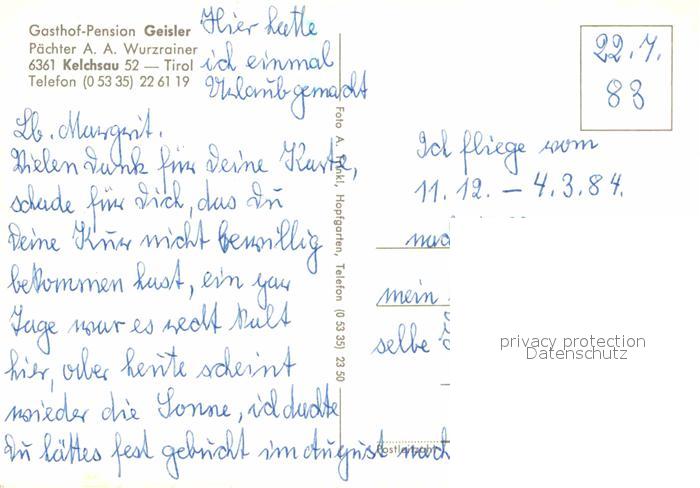 Gasthof-Pension Geisler
Pächter A. A. Wurzrainer
6361 Kelchsau 52 — Tirol
Telefon (0 53 35) 22 61 19
Hier hatte
ich einmal
Urlaub gemacht
22.7.
83
Lb. Margrit.
Vielen Dank für Deine Karte,
schade für Dich, das Du
Deine Kur nicht bewillig
bekommen hast, ein gar
Tage war es recht kalt
hier, aber heute scheint
wieder die Sonne, ich dachte
Du hättes fest gebucht im August nach
Foto A. Hankl, Hopfgarten, Telefon (0 53 35) 23 50
Ich fliege vom
11. 12. — 4.3.84.
mein
selbe
Postleitzahl
privacy protection
Datenschutz